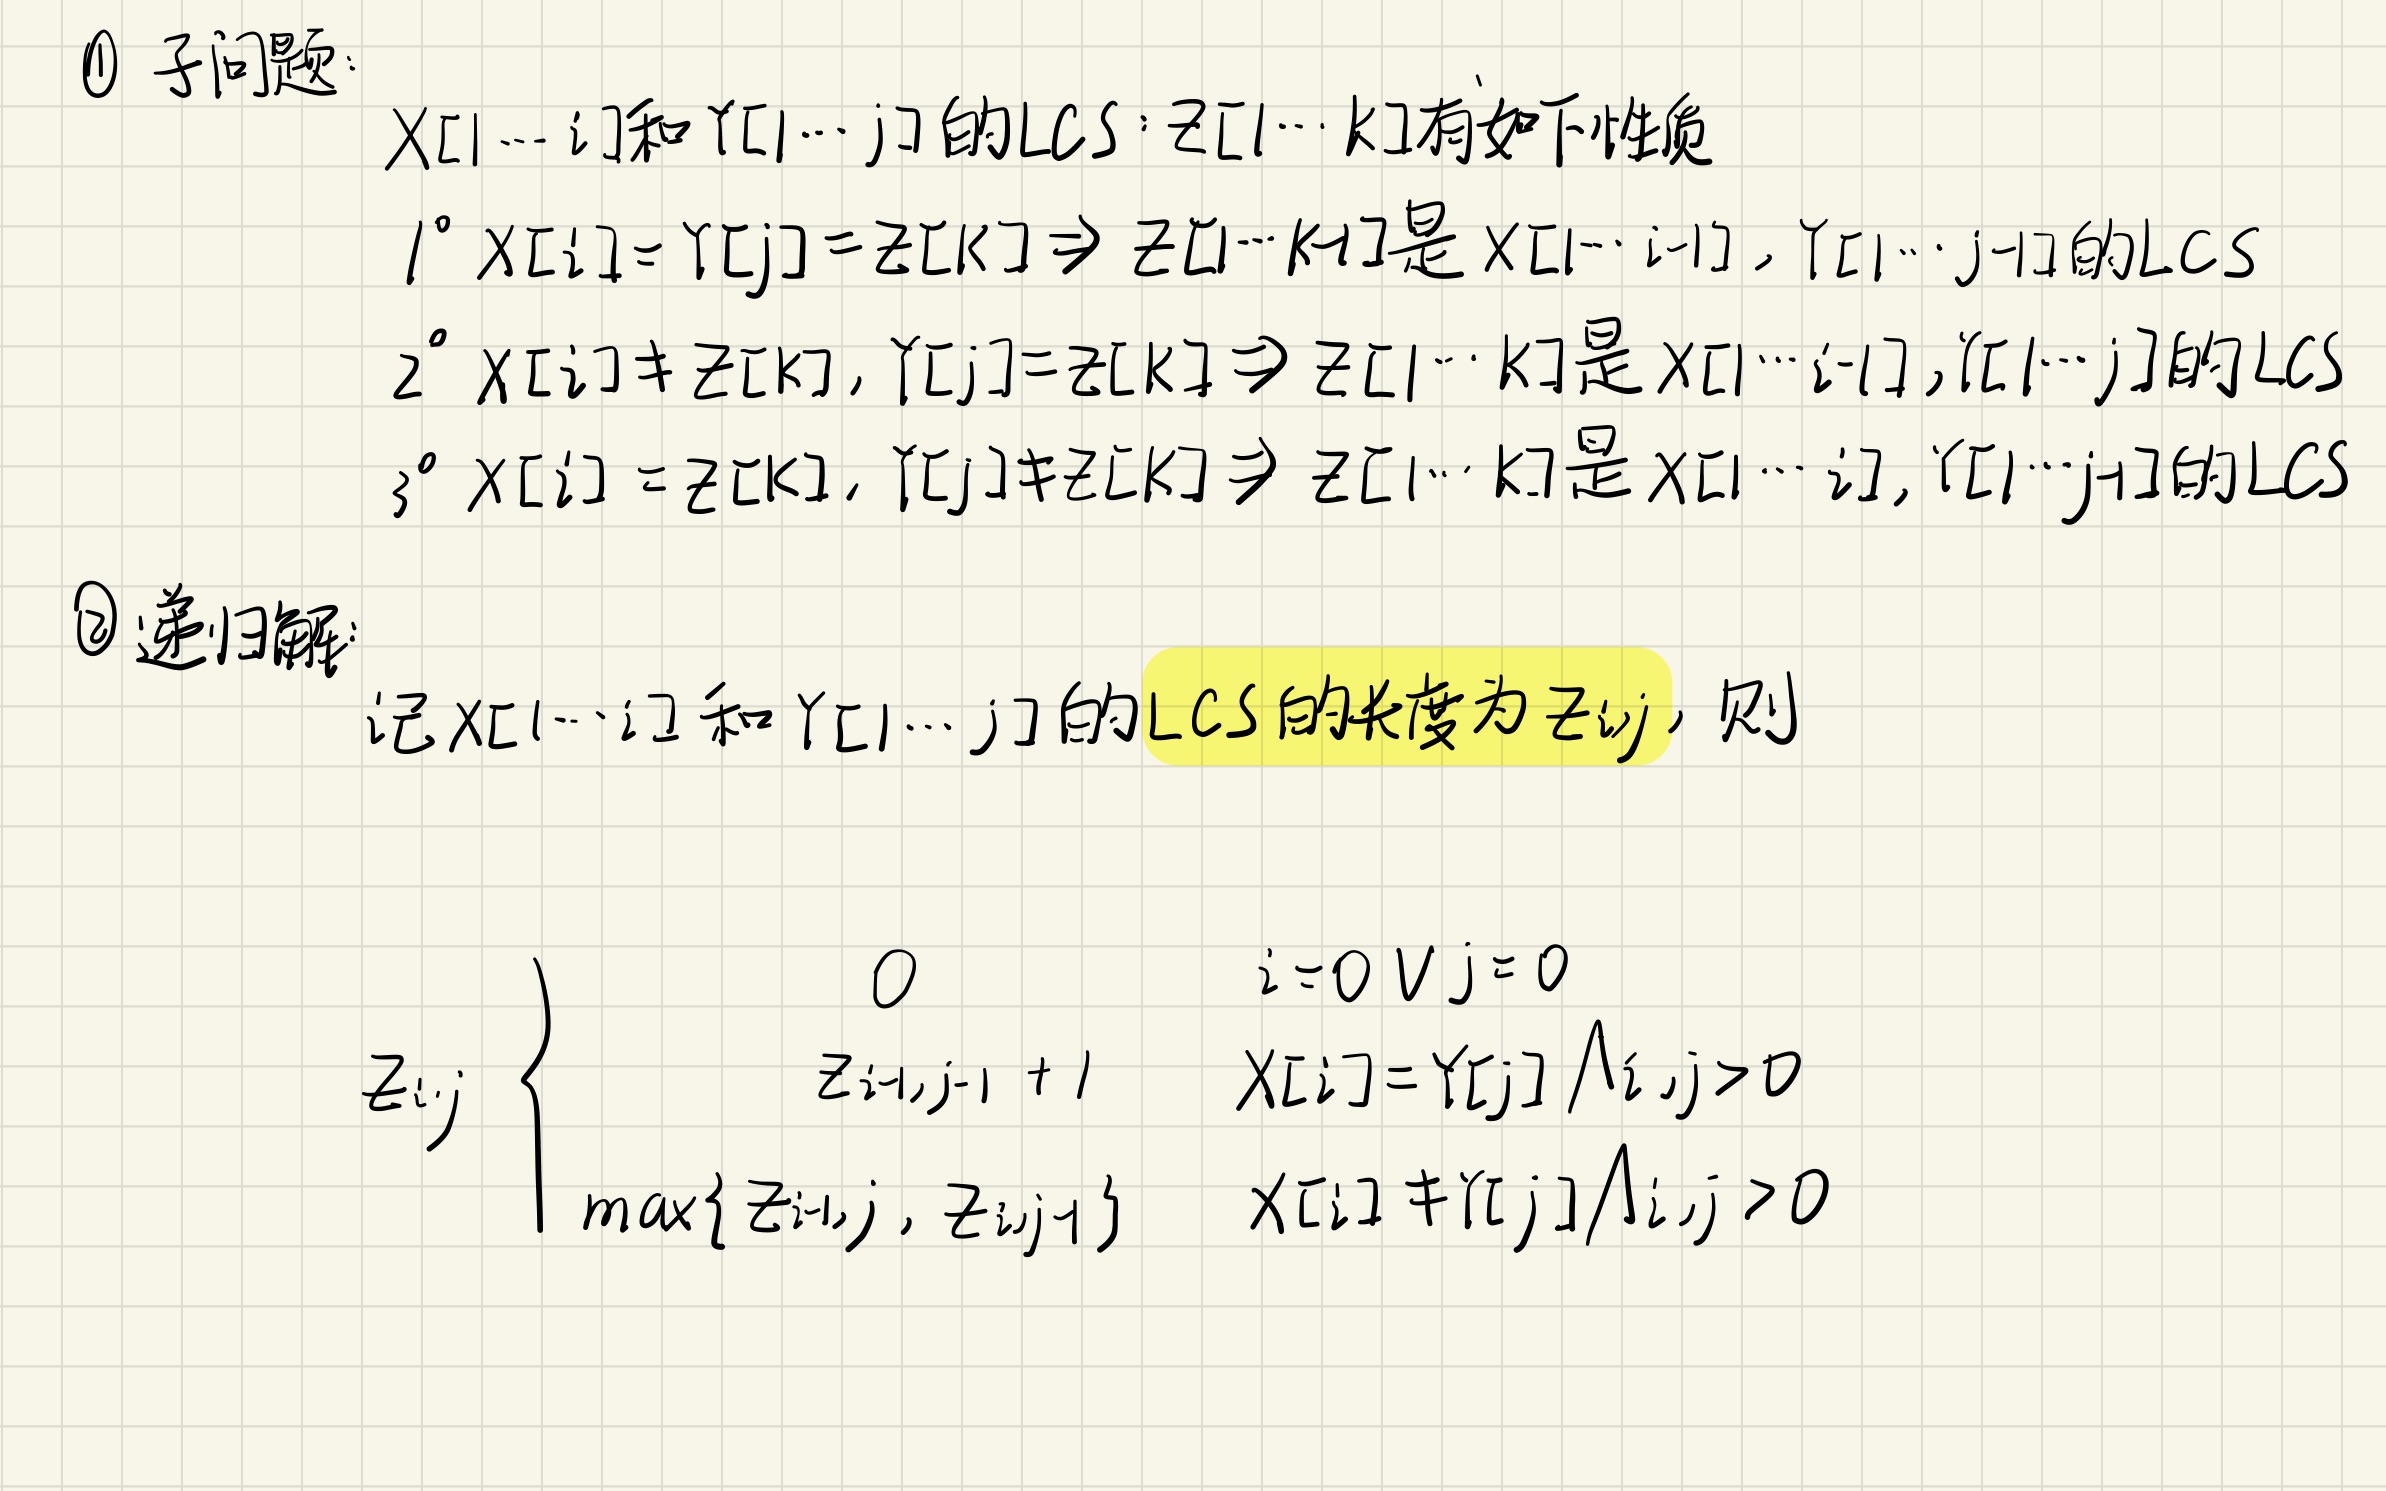 ① 子问题:
X[1…i]和Y[1…j]的LCS:Z[1…k]有如下性质
1° X[i]=Y[j]=Z[k]⇒Z[1…k-1]是X[1…i-1],Y[1…j-1]的LCS
2° X[i]≠Z[k],Y[j]=Z[k]⇒Z[1…k]是X[1…i-1],Y[1…j]的LCS
3° X[i]=Z[k],Y[j]≠Z[k]⇒Z[1…k]是X[1…i],Y[1…j-1]的LCS
② 递归解:
记X[1…i]和Y[1…j]的LCS的长度为Zi,j,则
0 i=0∨j=0
Zi,j { Zi-1,j-1 +1 X[i]=Y[j]∧i,j>0
max{Zi-1,j, Zi,j-1} X[i]≠Y[j]∧i,j>0